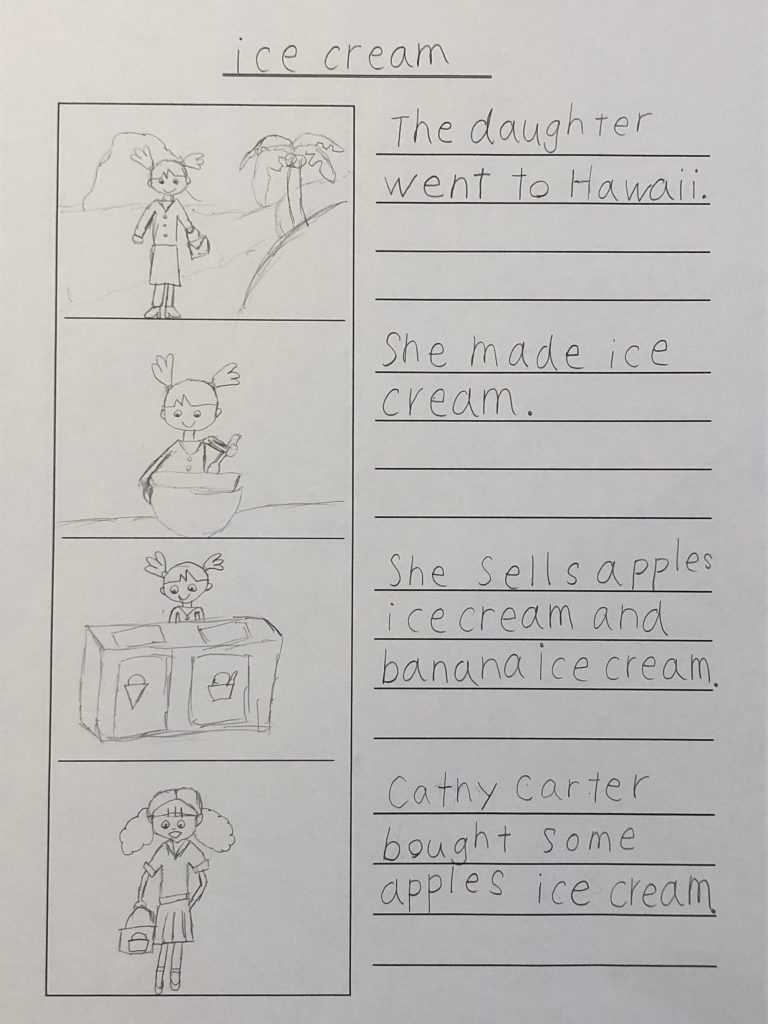 ice cream
The daughter
went to Hawaii.
She made ice
cream.
She sells apples
ice cream and
banana ice cream.
Cathy Carter
bought some
apples ice cream.